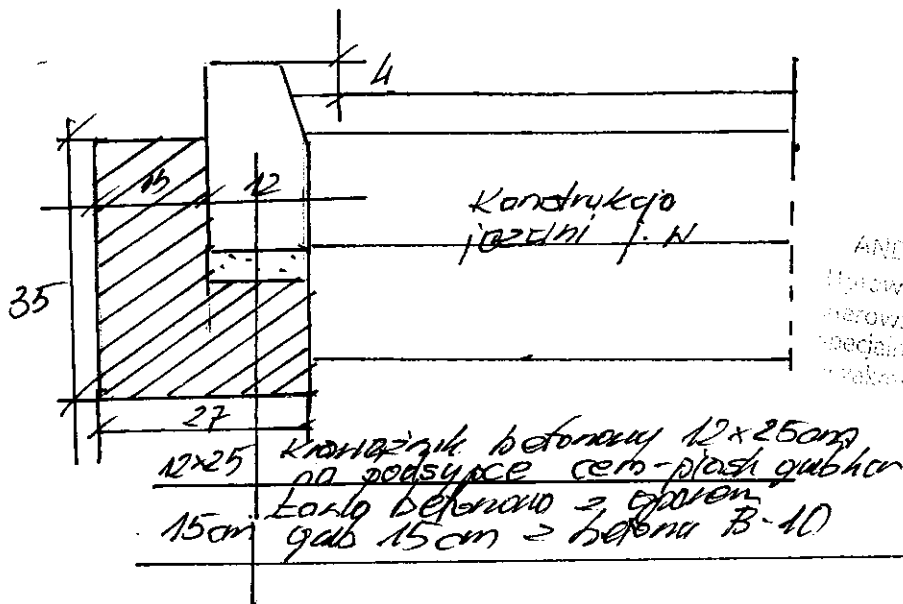 4
15 12
Konstrukcja
jezdni j. w
35
27
12x25 Krawężnik betonowy 12x25cm
na podsypce cem-piask grub
Ława betonowa z oporem
15cm grub 15cm z betonu B-10